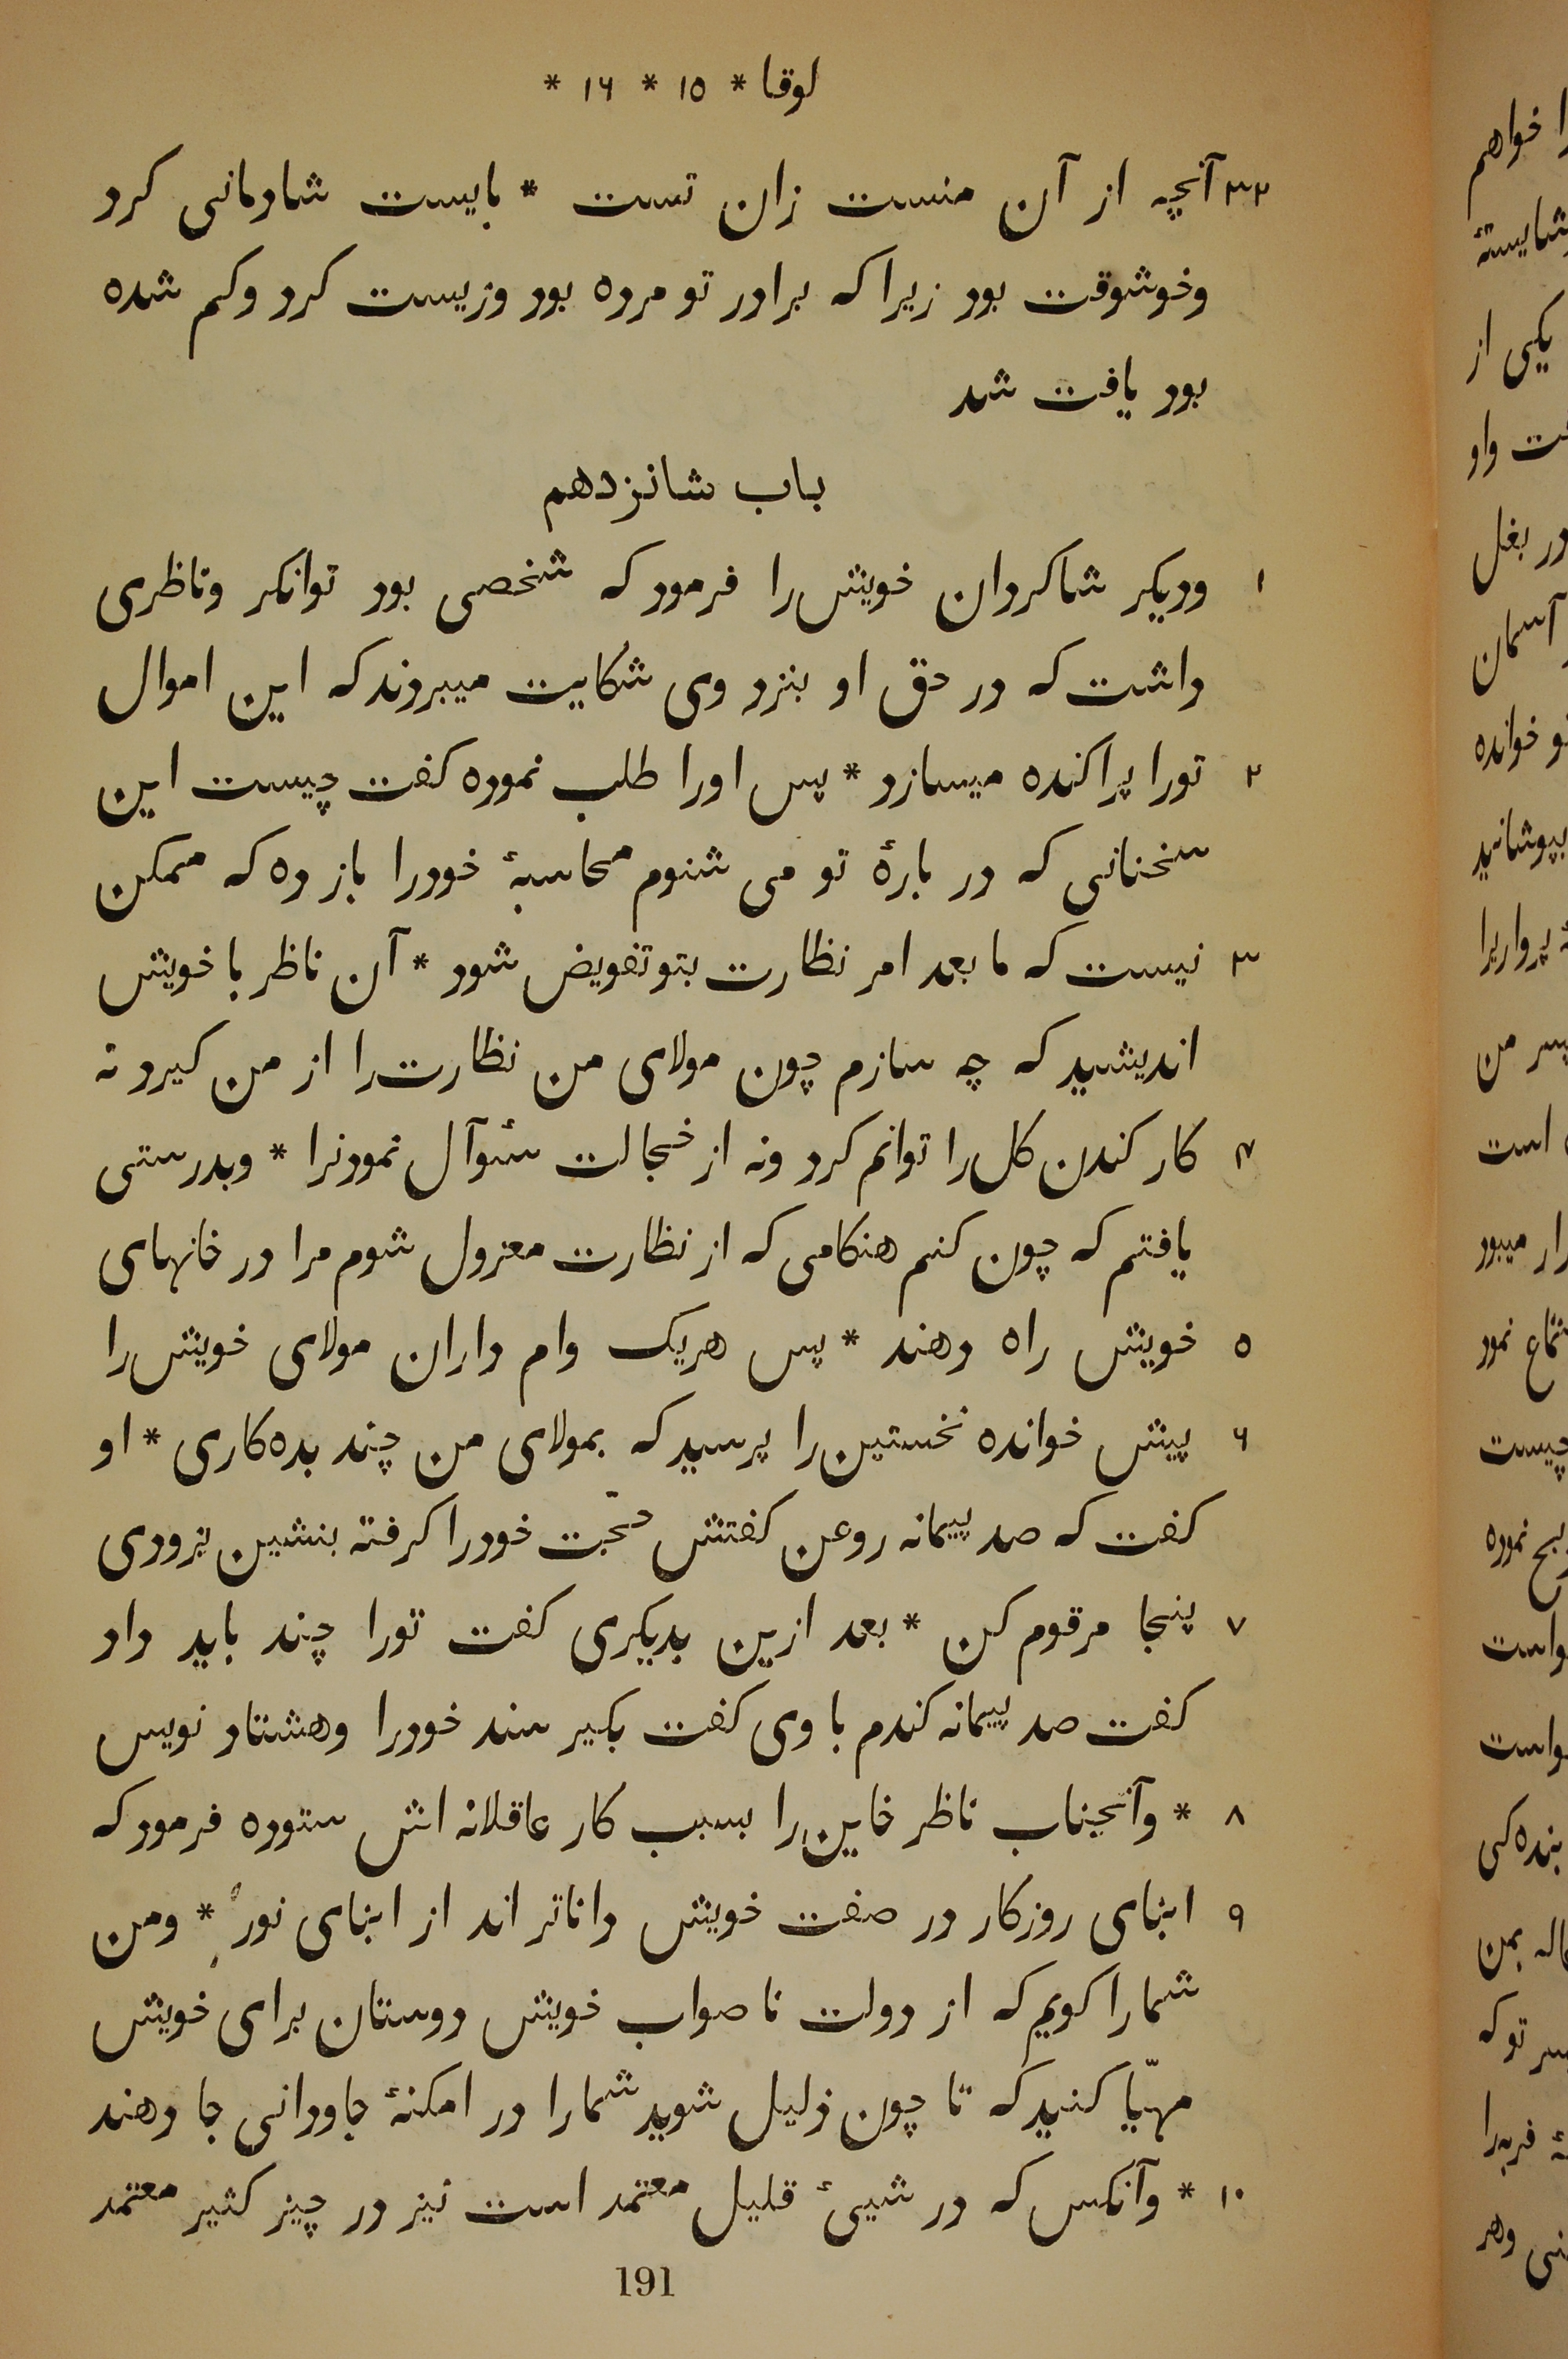 لوقا * ۱۵ * ۱۶ *
۳۲ آنچه از آن منست زان تست * بایست شادمانی کرد
وخوشوقت بود زیرا که برادر تو مرده بود وزیست کرد وکم شده
بود یافت شد
باب شانزدهم
۱ ودیکر شاکردان خویش را فرمود که شخصی بود توانکر وناظری
داشت که در حق او بنزد وی شکایت میبردند که این اموال
۲ تورا پراکنده میسازد * پس اورا طلب نموده کفت چیست این
سخنانی که در بارهٔ تو می شنوم محاسبهٔ خودرا باز ده که ممکن
۳ نیست که ما بعد امر نظارت بتو تفویض شود * آن ناظر با خویش
اندیشید که چه سازم چون مولای من نظارت را از من کیرد نه
۴ کار کندن کل را توانم کرد ونه از خجالت سئوآل نمودنرا * وبدرستی
یافتم که چون کنم هنکامی که از نظارت معزول شوم مرا در خانهای
۵ خویش راه دهند * پس هریک وام داران مولای خویش را
۶ پیش خوانده نخستین را پرسید که بمولای من چند بده کاری * او
کفت که صد پیمانه روعن کفتش حجّت خودرا کرفته بنشین بزودی
۷ پنجا مرقوم کن * بعد ازین بدیکری کفت تورا چند باید داد
کفت صد پیمانه کندم با وی کفت بکیر سند خودرا وهشتاد نویس
۸ * وآنجناب ناظر خاین را بسبب کار عاقلانه اش ستوده فرمود که
۹ ابنای روزکار در صفت خویش داناتر اند از ابنای نور * ومن
شمارا کویم که از دولت نا صواب خویش دوستان برای خویش
مهیّا کنید که تا چون ذلیل شوید شمارا در امکنهٔ جاودانی جا دهند
۱۰ * وآنکس که در شییٔ قلیل معتمد است نیز در چیز کثیر معتمد
191
را خواهم
شایستهٔ
یکی از
در بغل
آسمان
خوانده
بپوشانید
من
است
میبود
نمود
چیست
نموده
تو که
وهر